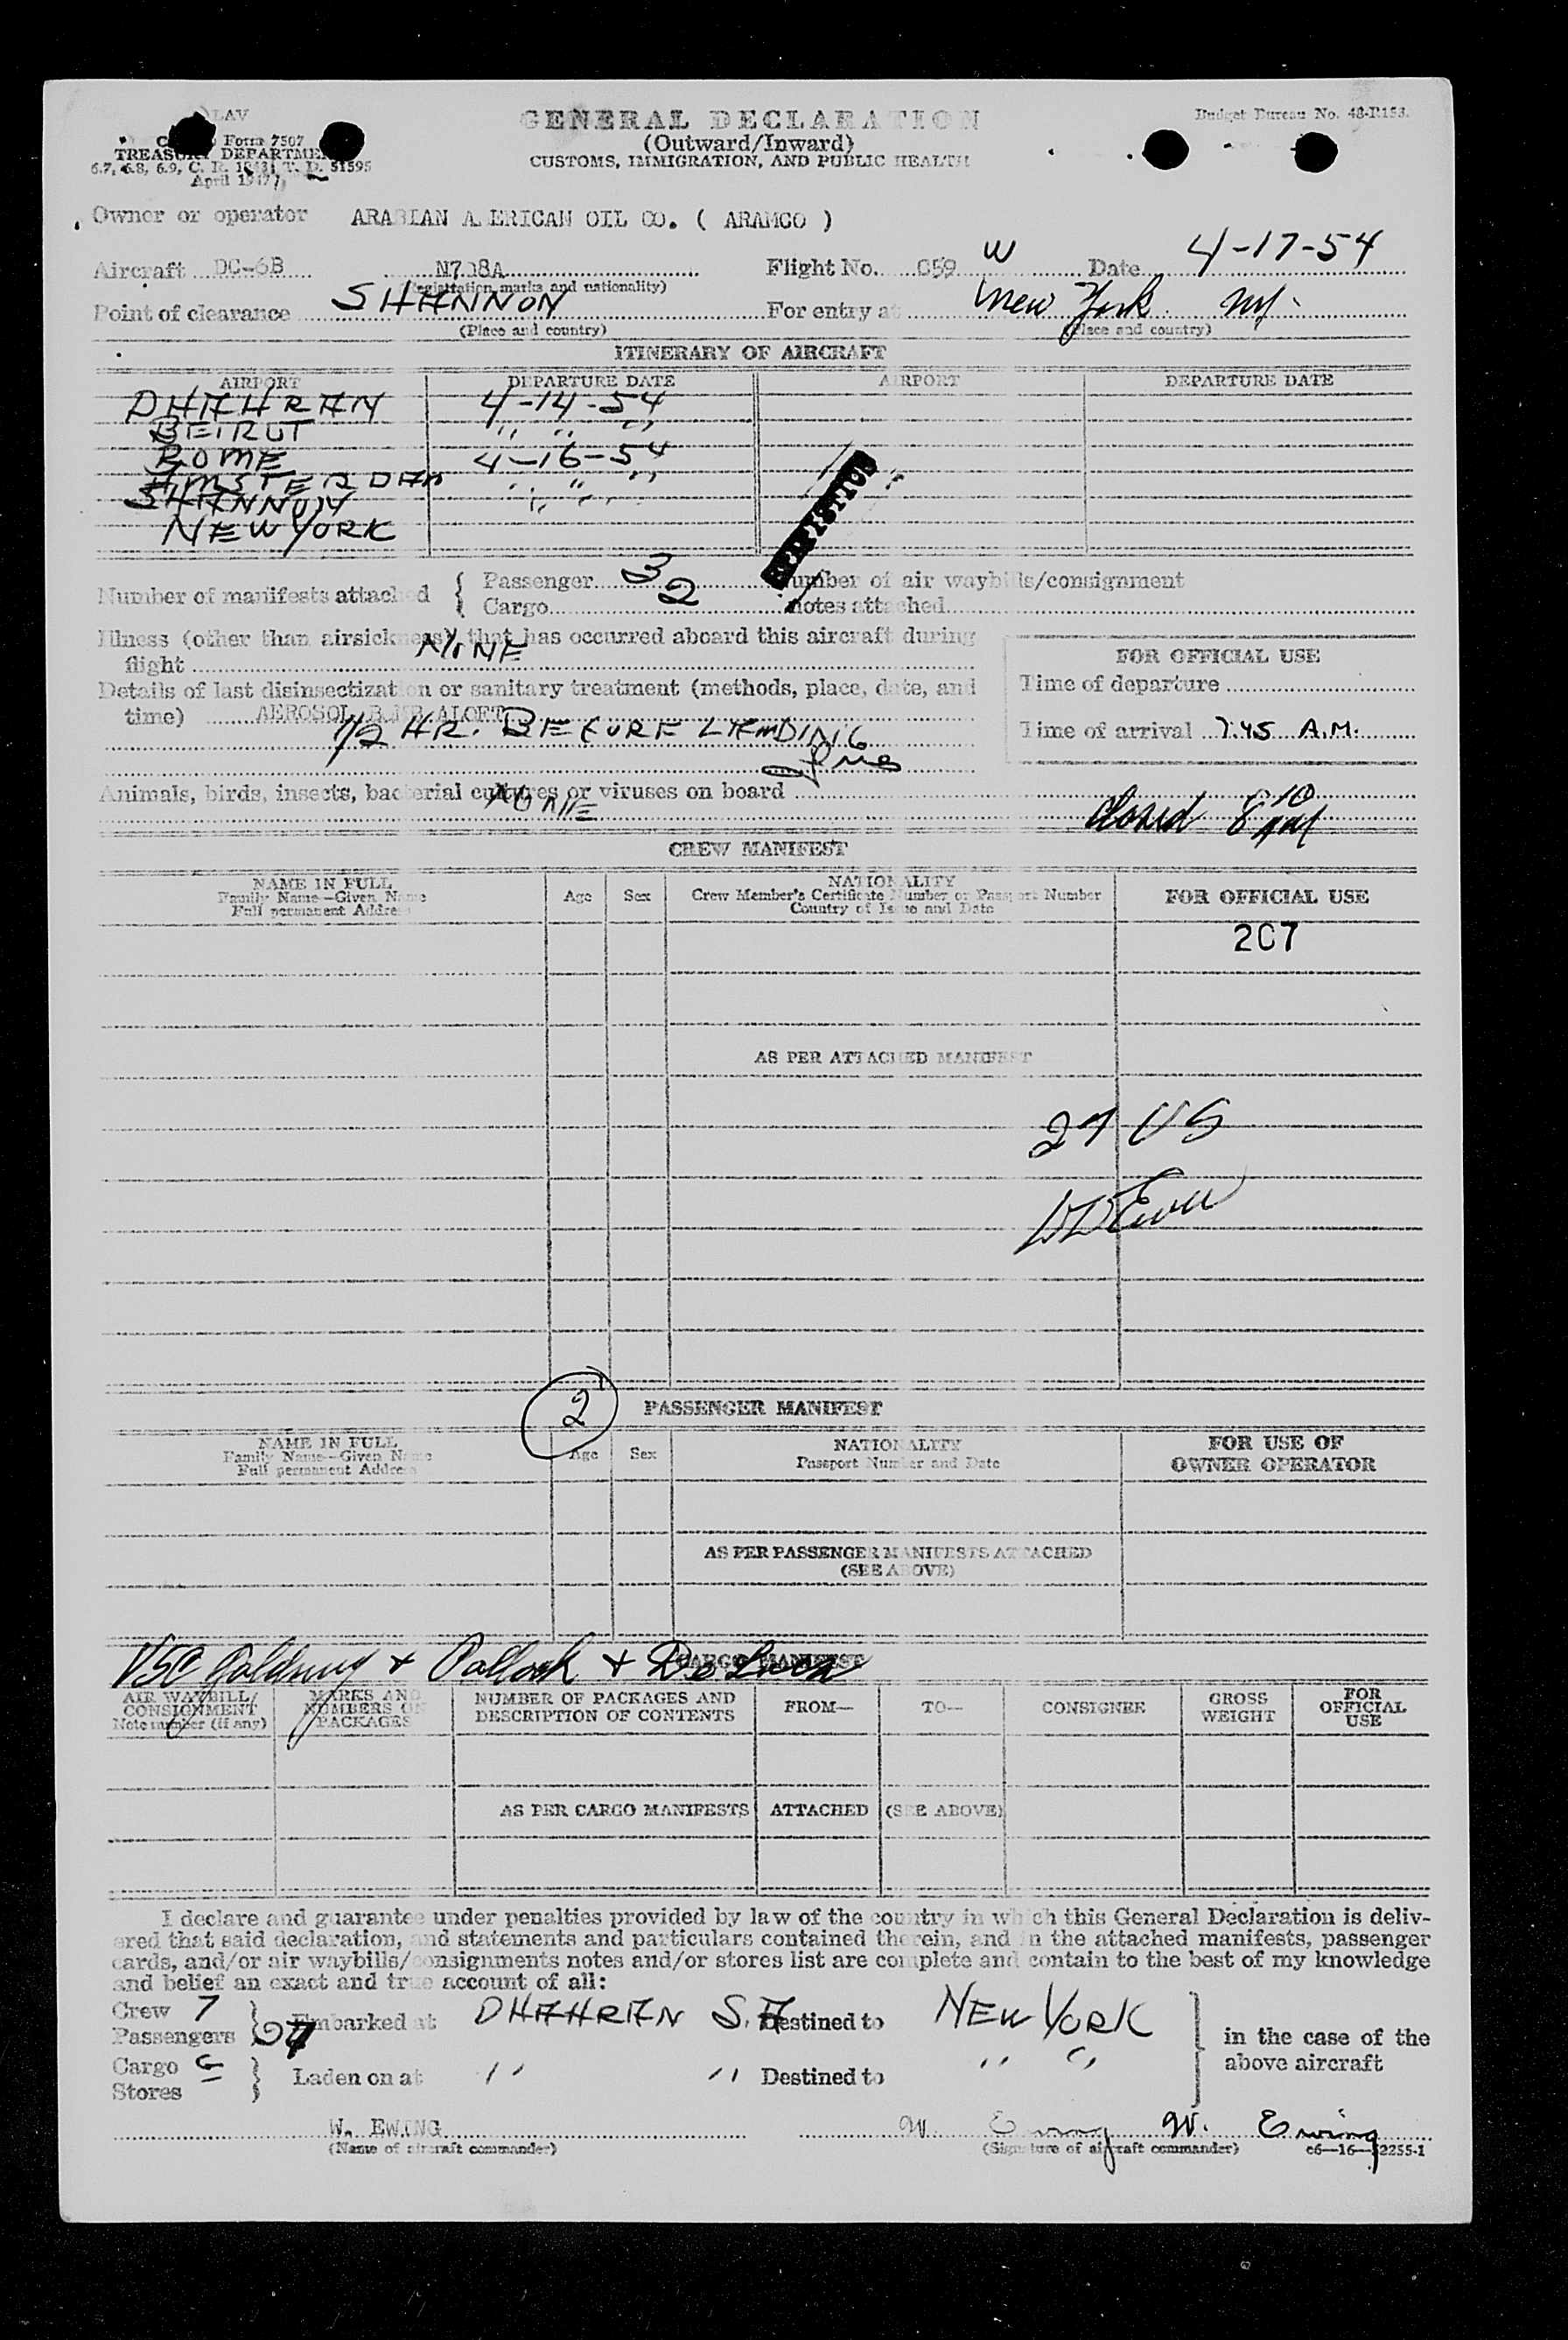 LAV
Form 7507
TREASURY DEPARTMENT
6.7, 6.8, 6.9, C. R. 1943; T. D. 51595
April 1947
GENERAL DECLARATION
(Outward/Inward)
CUSTOMS, IMMIGRATION, AND PUBLIC HEALTH
Budget Bureau No. 48-R153.
Owner or operator ARABIAN A ERICAN OIL CO. ( ARAMCO )
Aircraft DC-6B N708A Flight No. 059 W Date 4-17-54
(Registration marks and nationality)
Point of clearance SHANNON For entry at New York NY.
(Place and country) (Place and country)
ITINERARY OF AIRCRAFT
AIRPORT DEPARTURE DATE AIRPORT DEPARTURE DATE
DHAHRAN 4-14-54
BEIRUT " " "
ROME 4-16-54
AMSTERDAM " " "
SHANNON " " "
NEW YORK
Number of manifests attached { Passenger 3 Number of air waybills/consignment
Cargo 2 notes attached
Illness (other than airsickness) that has occurred aboard this aircraft during
flight NONE
Details of last disinsectization or sanitary treatment (methods, place, date, and
time) AEROSOL BOMB ALOFT
1/2 HR. BEFORE LANDING
Animals, birds, insects, bacterial cultures or viruses on board
NONE
FOR OFFICIAL USE
Time of departure
Time of arrival 7.45 A.M.
Closed 8 10 AM
CREW MANIFEST
NAME IN FULL
Family Name—Given Name
Full permanent Address
Age Sex
NATIONALITY
Crew Member's Certificate Number or Passport Number
Country of Issue and Date
FOR OFFICIAL USE
207
AS PER ATTACHED MANIFEST
27 US
2
PASSENGER MANIFEST
NAME IN FULL
Family Name—Given Name
Full permanent Address
Age Sex
NATIONALITY
Passport Number and Date
FOR USE OF
OWNER OPERATOR
AS PER PASSENGER MANIFESTS ATTACHED
(SEE ABOVE)
+ Pollock + De Luca
CARGO MANIFEST
AIR WAYBILL/
CONSIGNMENT
Note number (if any)
MARKS AND
NUMBERS ON
PACKAGES
NUMBER OF PACKAGES AND
DESCRIPTION OF CONTENTS
FROM— TO— CONSIGNEE
GROSS
WEIGHT
FOR
OFFICIAL
USE
AS PER CARGO MANIFESTS ATTACHED (SEE ABOVE)
I declare and guarantee under penalties provided by law of the country in which this General Declaration is deliv-
ered that said declaration, and statements and particulars contained therein, and in the attached manifests, passenger
cards, and/or air waybills/consignments notes and/or stores list are complete and contain to the best of my knowledge
and belief an exact and true account of all:
Crew 7
Passengers 27 } Embarked at DHAHRAN S.A Destined to NEW YORK
Cargo
Stores } Laden on at " " Destined to " "
in the case of the
above aircraft
W. EWING W. Ewing W. Ewing
(Name of aircraft commander) (Signature of aircraft commander) c6—16—52255-1